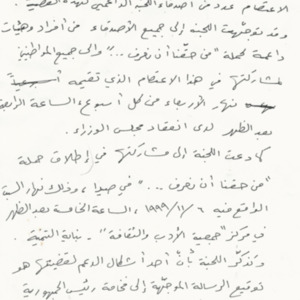 الاعتصام عدد من أصدقاء اللجنة الداعمين لهذه القضية.
وقد توجّهت اللجنة إلى جميع الأصدقاء من أفراد وهيئات
داعمة لحملة "من حقّنا أن نعرف ..." وإلى جميع المواطنين
مشاركتها في هذا الاعتصام الذي تقيمه أسبوعياً
نهار الأربعاء من كل أسبوع، الساعة الرابعة
بعد الظهر لدى انعقاد مجلس الوزراء.
كما دعت اللجنة إلى مشاركتها في إطلاق حملة
"من حقّنا أن نعرف ..." في صيدا، وذلك نهار السبت
الواقع فيه ٦/١١/١٩٩٩، الساعة الخامسة بعد الظهر
في مركز "جمعية الأدب والثقافة" - بناية
وتذكّر اللجنة بأنّ أحد أشكال الدعم لقضيتها هو
توقيع الرسالة الموجّهة إلى فخامة رئيس الجمهورية